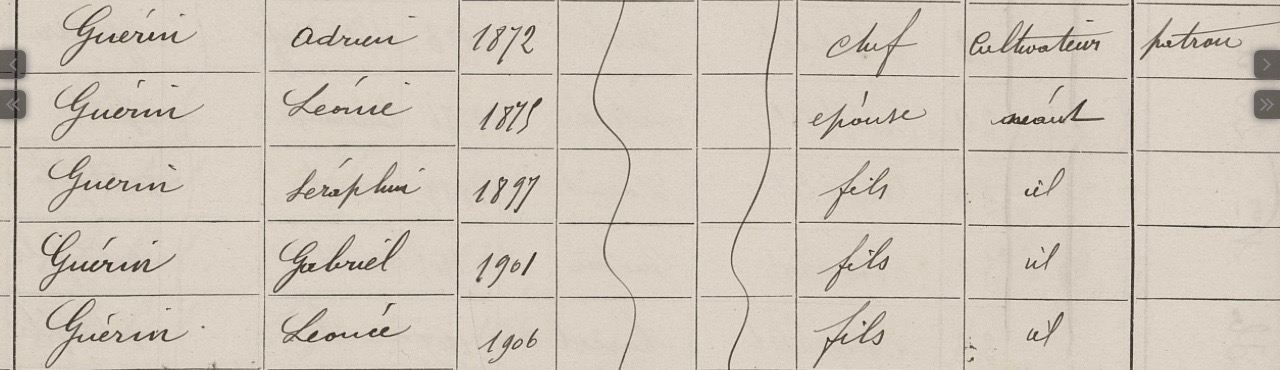 Guérin Adrien 1872 chef Cultivateur patron
Guérin Léonie 1875 epouse néant
Guerin Séraphin 1897 fils id
Guérin Gabriel 1901 fils id
Guérin Leonce 1906 fils id